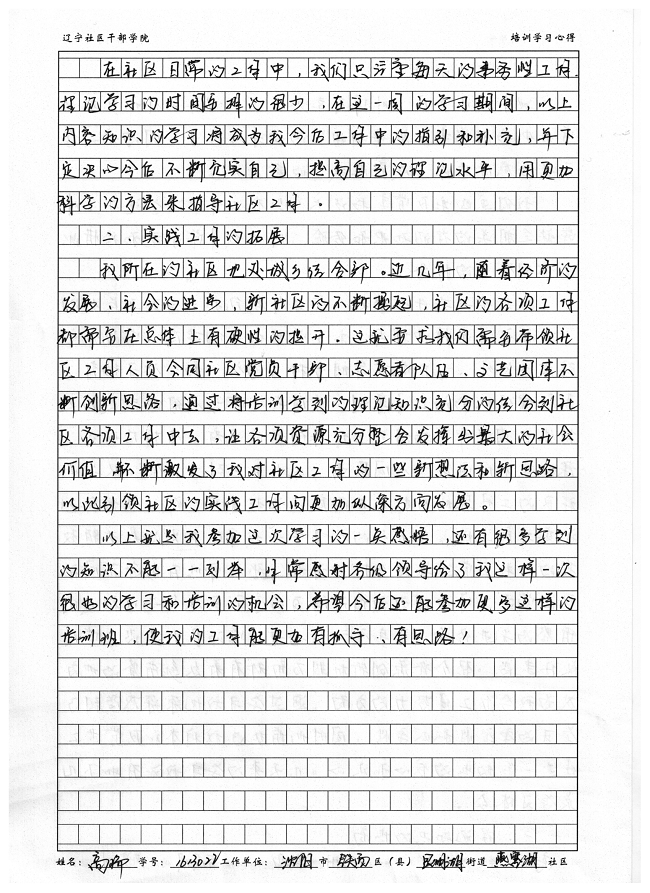 辽宁社区干部学院 培训学习心得
在社区日常的工作中，我们只注重每天的事务性工作，
理论学习的时间安排的很少，在这一周的学习期间，以上
内容知识的学习将成为我今后工作中的指引和补充，并下
定决心今后不断充实自己，提高自己的理论水平，用更加
科学的方法来指导社区工作。
二、实践工作的拓展
我所在的社区地处城乡结合部。近几年，随着经济的
发展、社会的进步，新社区的不断，社区的各项工作
都需要在总体上有硬性的提升。这就要求我们需要带领社
区工作人员会同社区党员干部、志愿者队伍、文艺团体不
断创新思路，通过将培训学到的理论知识充分的结合到社
区各项工作中去，让各项资源充分整合发挥出最大的社会
价值，不断激发了我对社区工作的一些新想法和新思路，
以此引领社区的实践工作向更加纵深方向发展。
以上就是我参加这次学习的一点感悟，还有很多学到
的知识不能一一列举，非常感谢各级领导给了我这样一次
很好的学习和培训的机会，希望今后还能参加更多这样的
培训班，使我的工作能更加有抓手、有思路！
姓名： 高 学号： 工作单位： 沈阳 市 铁西 区（县） 明湖 街道 湖 社区